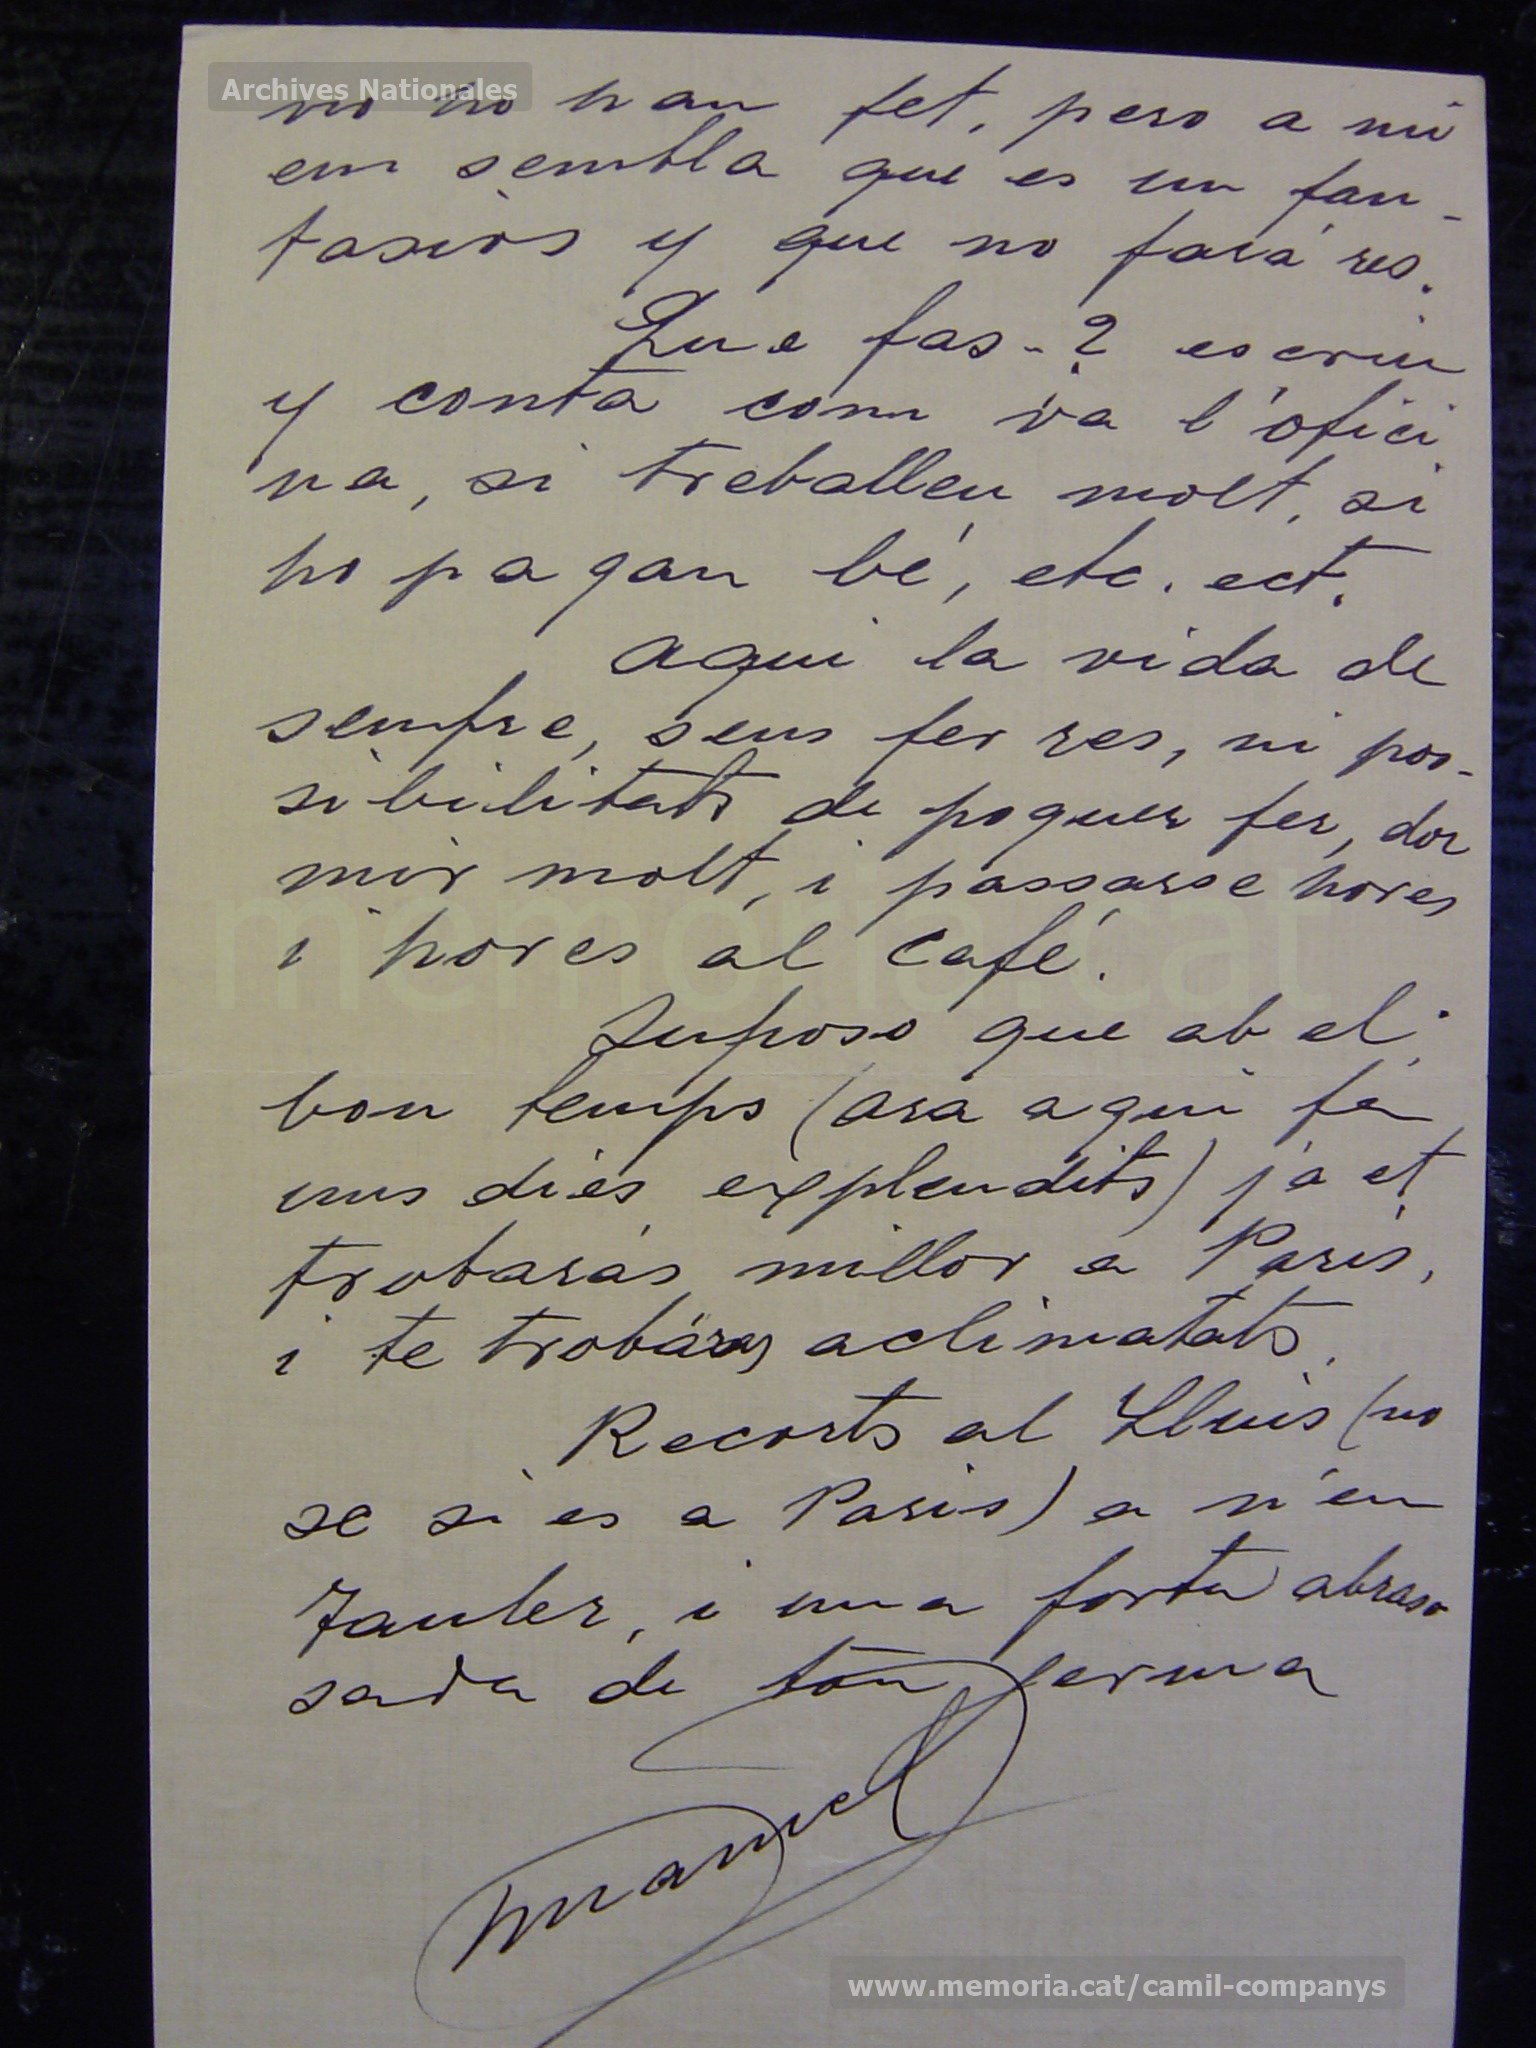 Archives Nationales
no ho han fet, pero a mi
em sembla que es un fan-
tasios y que no fará res.
Que fas-? escriu
y conta com va l'ofici
na, si treballeu molt, si
ho pagan bé, etc. ect.
Aqui la vida de
sempre, sens fer res, ni pos-
sibilitats de poguer fer, dor
mir molt, i passarse hores
i hores al café.
Suposo que ab el
bon temps (ara aqui fa
uns dies explendits) ja et
trobarás millor a Paris,
i te trobáras aclimatats.
Recorts al Lluis (no
se si es a Paris) a n'en
Tauler, i una forta abrasa
sada de ton germa
Manuel
memoria.cat
www.memoria.cat/camil-companys